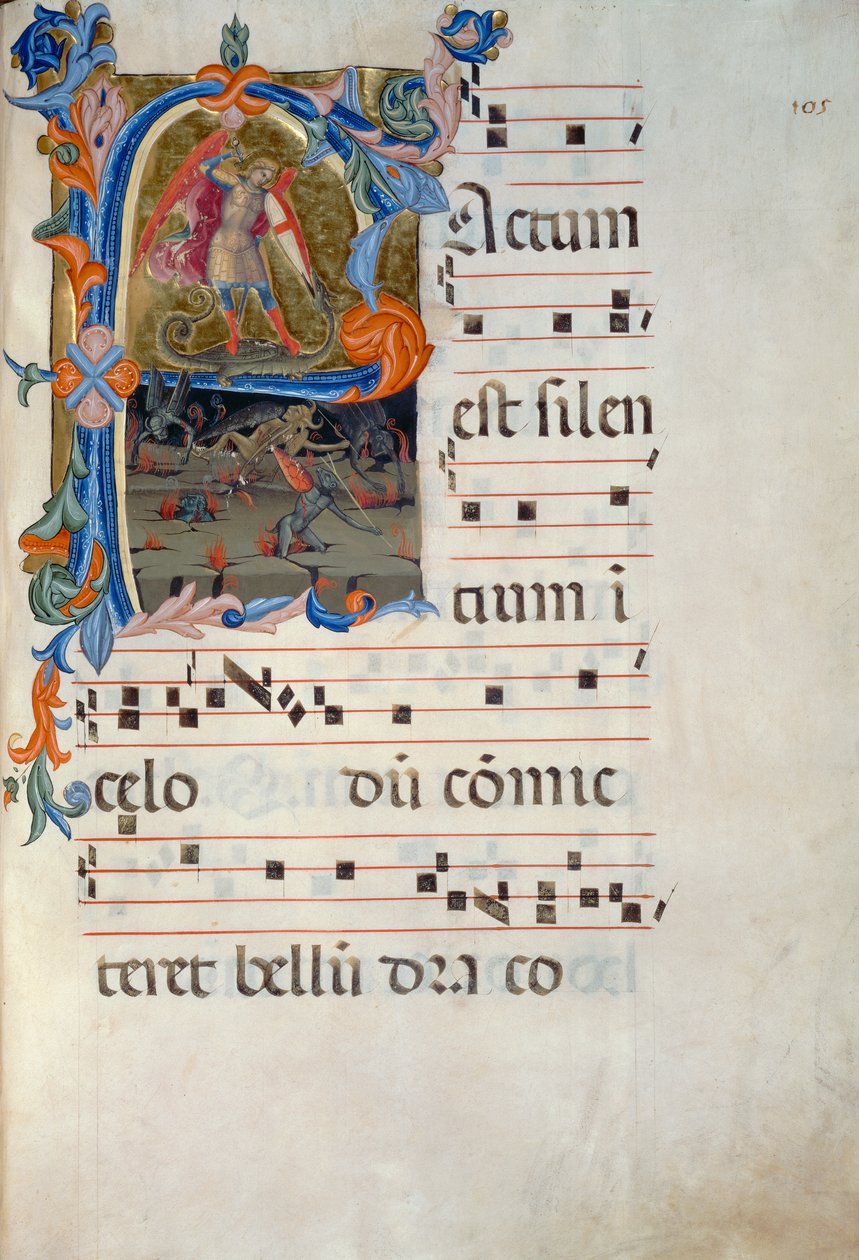 105
FActum
est silen
tium i
cęlo dū cōmic
teret bellū draco